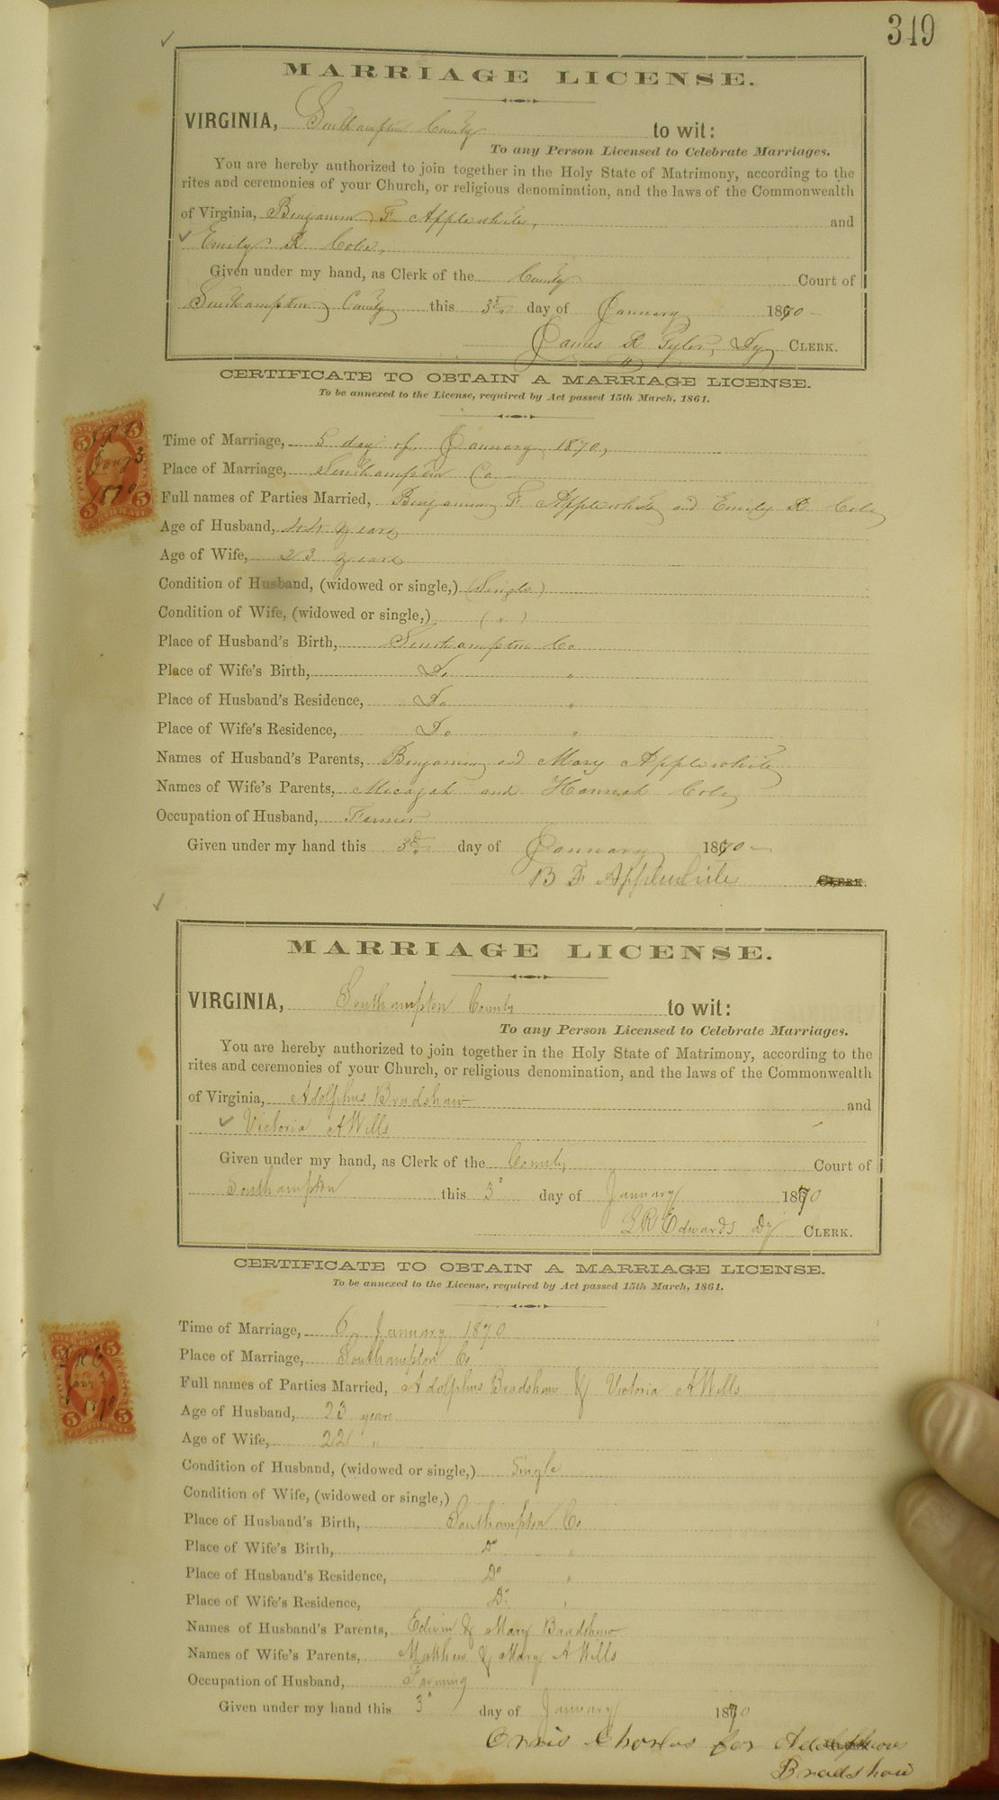 349
MARRIAGE LICENSE.
VIRGINIA, Southampton County to wit:
To any Person Licensed to Celebrate Marriages.
You are hereby authorized to join together in the Holy State of Matrimony, according to the
rites and ceremonies of your Church, or religious denomination, and the laws of the Commonwealth
of Virginia, Benjamin F. Applewhite, and
Emily R Cobb,
Given under my hand, as Clerk of the County Court of
Southampton County this 3d day of January 1870
James R Tyler, Dy CLERK.
CERTIFICATE TO OBTAIN A MARRIAGE LICENSE.
To be annexed to the License, required by Act passed 15th March, 1861.
Time of Marriage, 5 day of January 1870,
Place of Marriage, Southampton Co
Full names of Parties Married, Benjamin F. Applewhite and Emily R Cobb
Age of Husband, 44 years
Age of Wife, 23 years
Condition of Husband, (widowed or single,) (Single)
Condition of Wife, (widowed or single,) ( " )
Place of Husband's Birth, Southampton Co
Place of Wife's Birth, Do "
Place of Husband's Residence, Do "
Place of Wife's Residence, Do "
Names of Husband's Parents, Benjamin and Mary Applewhite
Names of Wife's Parents, Micajah and Hannah Cobb
Occupation of Husband, Farmer
Given under my hand this 3d day of January 1870
B F Applewhite CLERK.
5 5
Jany 3
1870
5 5
MARRIAGE LICENSE.
VIRGINIA, Southampton County to wit:
To any Person Licensed to Celebrate Marriages.
You are hereby authorized to join together in the Holy State of Matrimony, according to the
rites and ceremonies of your Church, or religious denomination, and the laws of the Commonwealth
of Virginia, Adolphus Bradshaw and
Victoria A Wills
Given under my hand, as Clerk of the County Court of
Southampton this 3d day of January 1870
L R Edwards Dy CLERK.
CERTIFICATE TO OBTAIN A MARRIAGE LICENSE.
To be annexed to the License, required by Act passed 15th March, 1861.
Time of Marriage, 6 January 1870
Place of Marriage, Southampton Co
Full names of Parties Married, Adolphus Bradshaw & Victoria A Wills
Age of Husband, 23 years
Age of Wife, 22 "
Condition of Husband, (widowed or single,) Single
Condition of Wife, (widowed or single,)
Place of Husband's Birth, Southampton Co
Place of Wife's Birth, Do "
Place of Husband's Residence, Do "
Place of Wife's Residence, Do "
Names of Husband's Parents, Edwin & Mary Bradshaw
Names of Wife's Parents, Matthew & Mary A Wills
Occupation of Husband, Farming
Given under my hand this 3d day of January 1870
Charles for
Bradshaw
5 5
1870
5 5